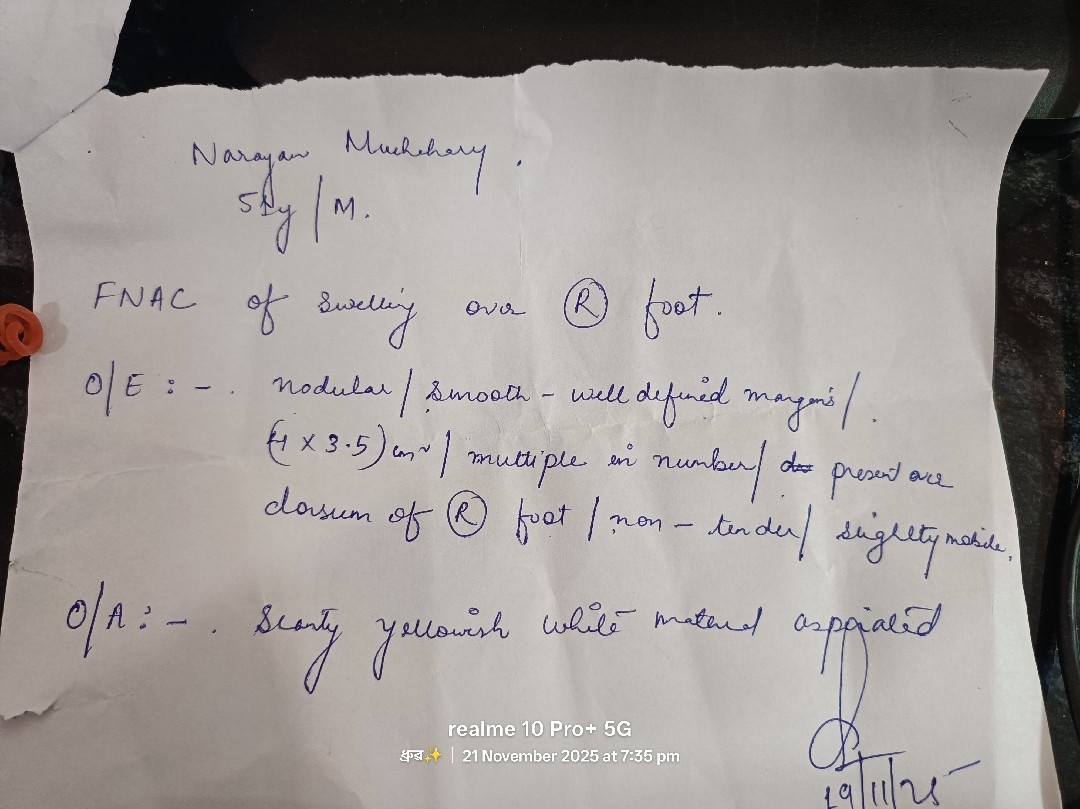 Narayan Muchahary.
51y / M.
FNAC of swelling over Ⓡ foot.
O/E :- . nodular / smooth - well defined margins / .
(4 x 3.5) cm² / multiple in number / present over
dorsum of Ⓡ foot / non - tender / slightly mobile.
O/A :- . Scanty yellowish white material aspirated
19/11/25
realme 10 Pro+ 5G
ধ্রুব✨ | 21 November 2025 at 7:35 pm